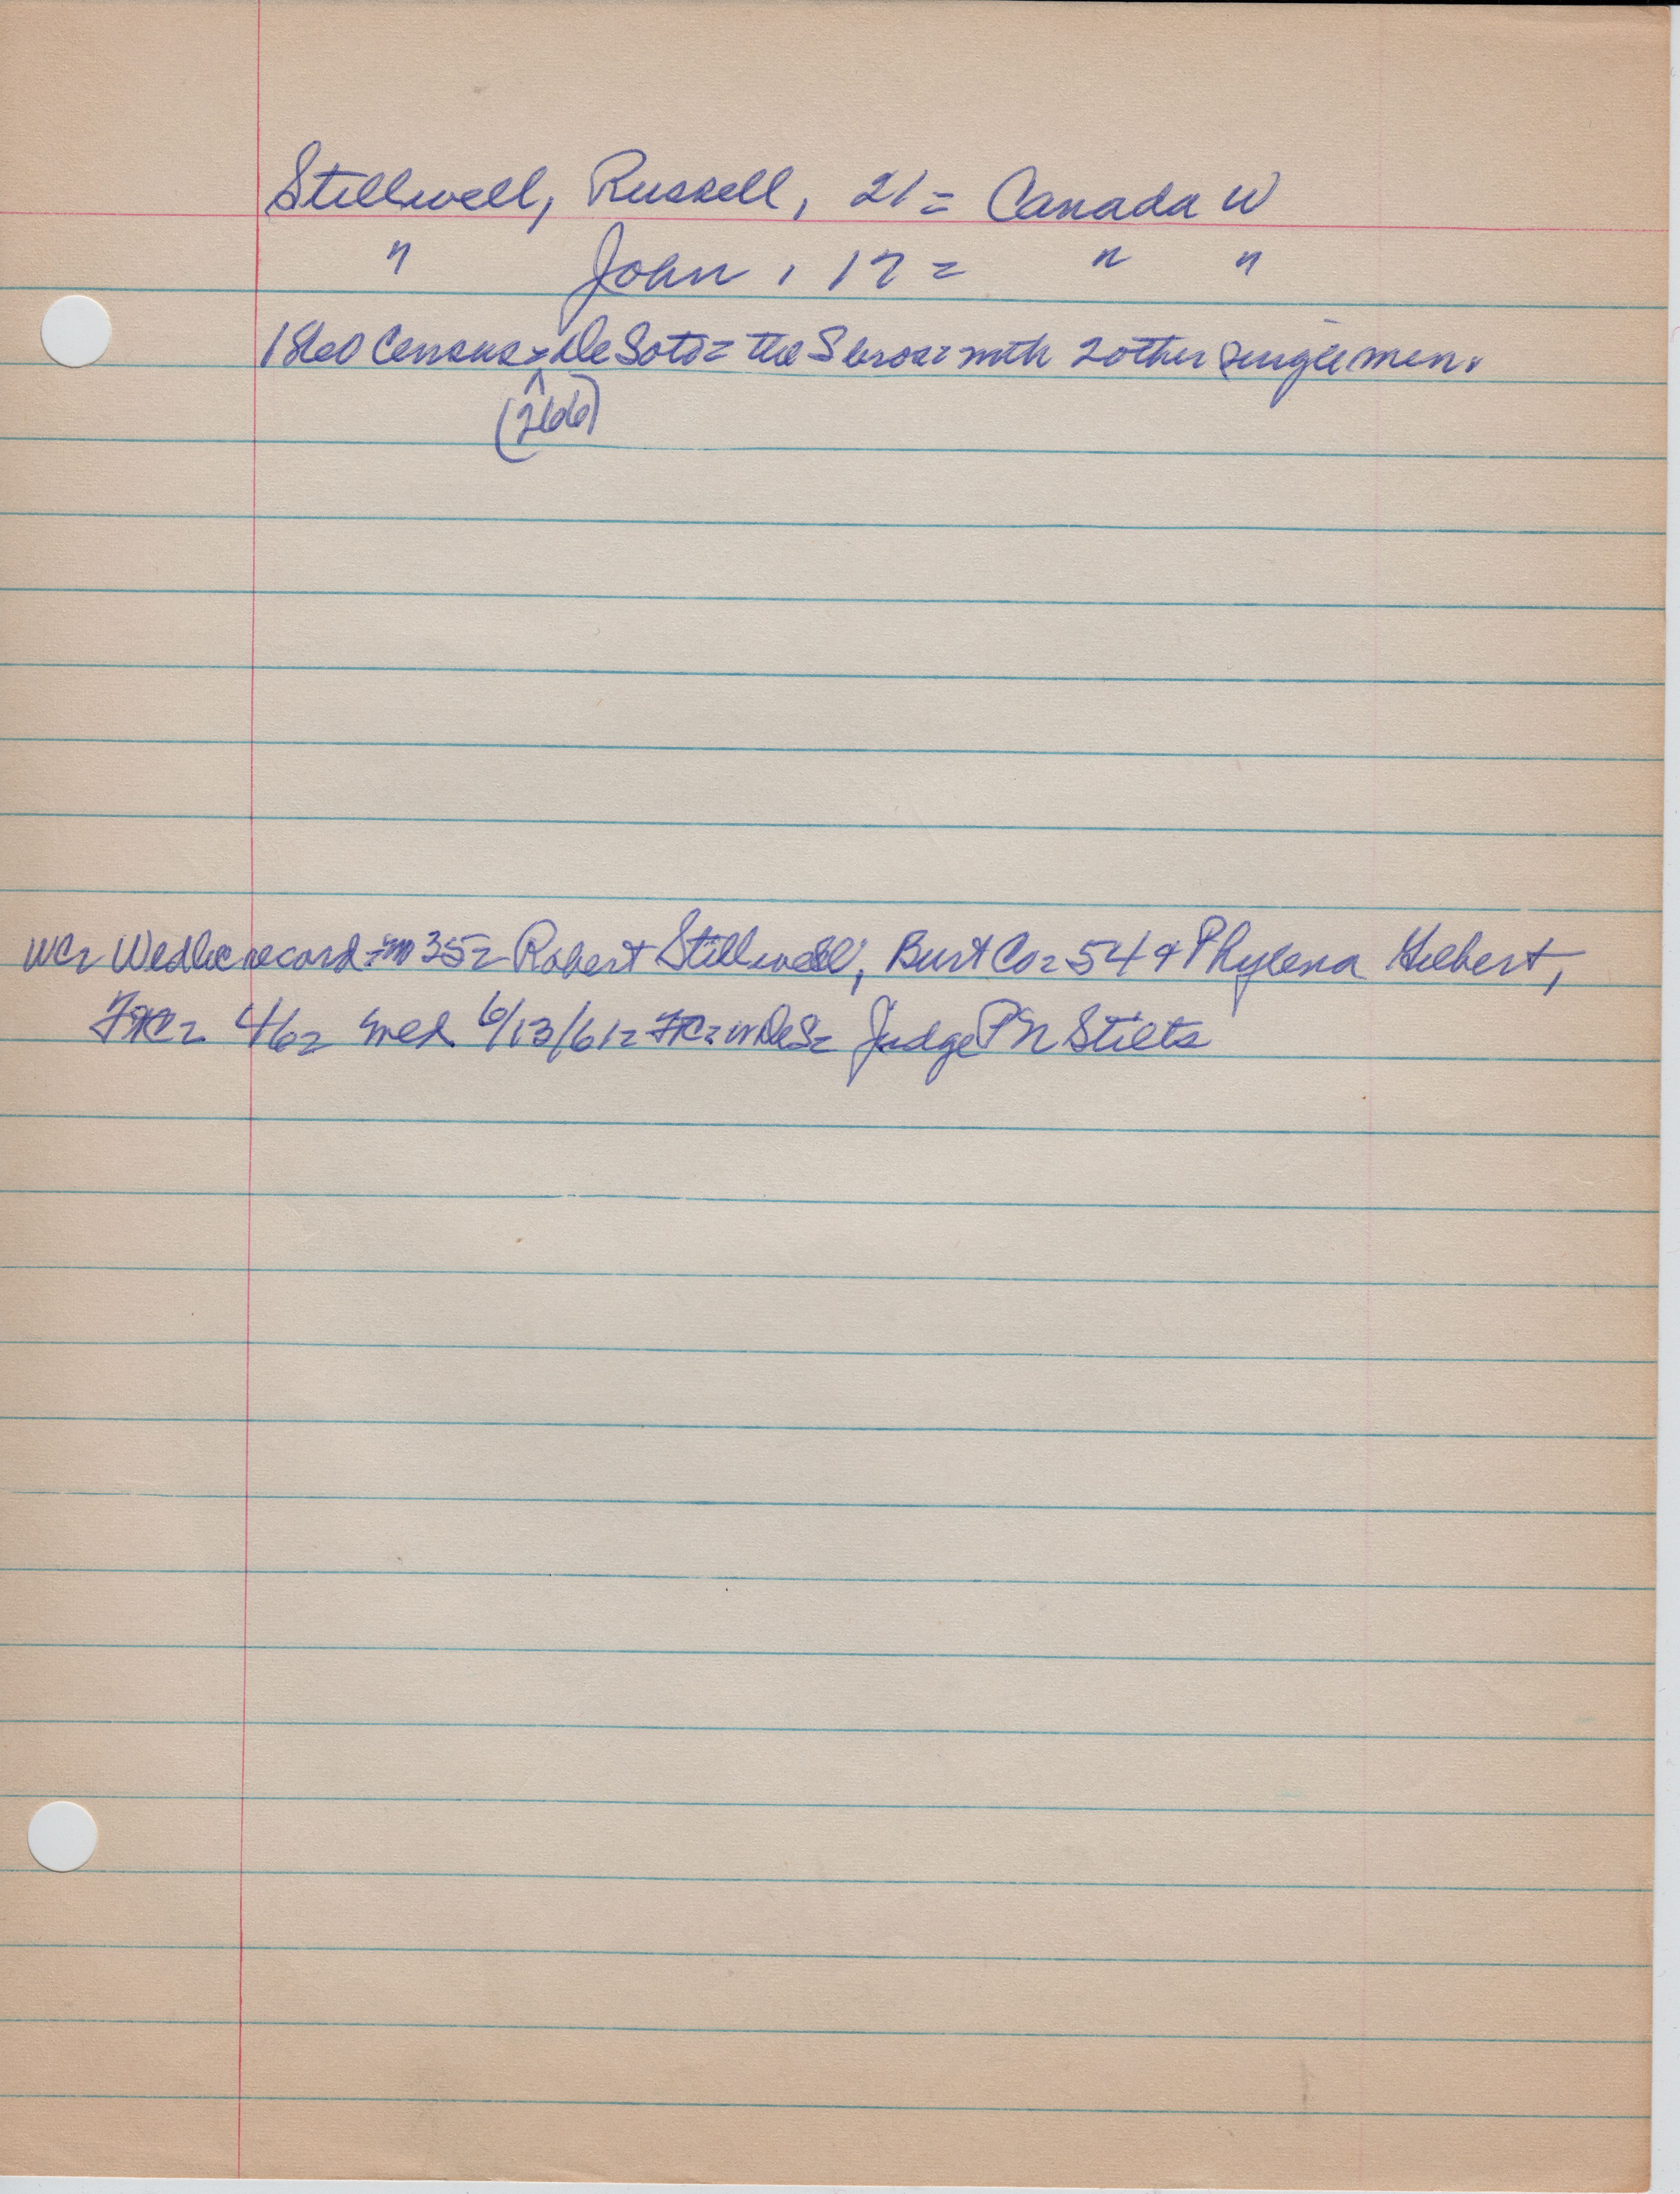 Stillwell, Russell, 21 = Canada W
" John, 17 = " "
1860 Census = De Soto = the S bros = with 2 other single men.
(266)
WC = Wed lic record = m 35 = Robert Stillwell, Burt Co = 54 & Phylena Gilbert,
= 46 = wed 6/13/61 = FC = DeS = Judge P N Stilts